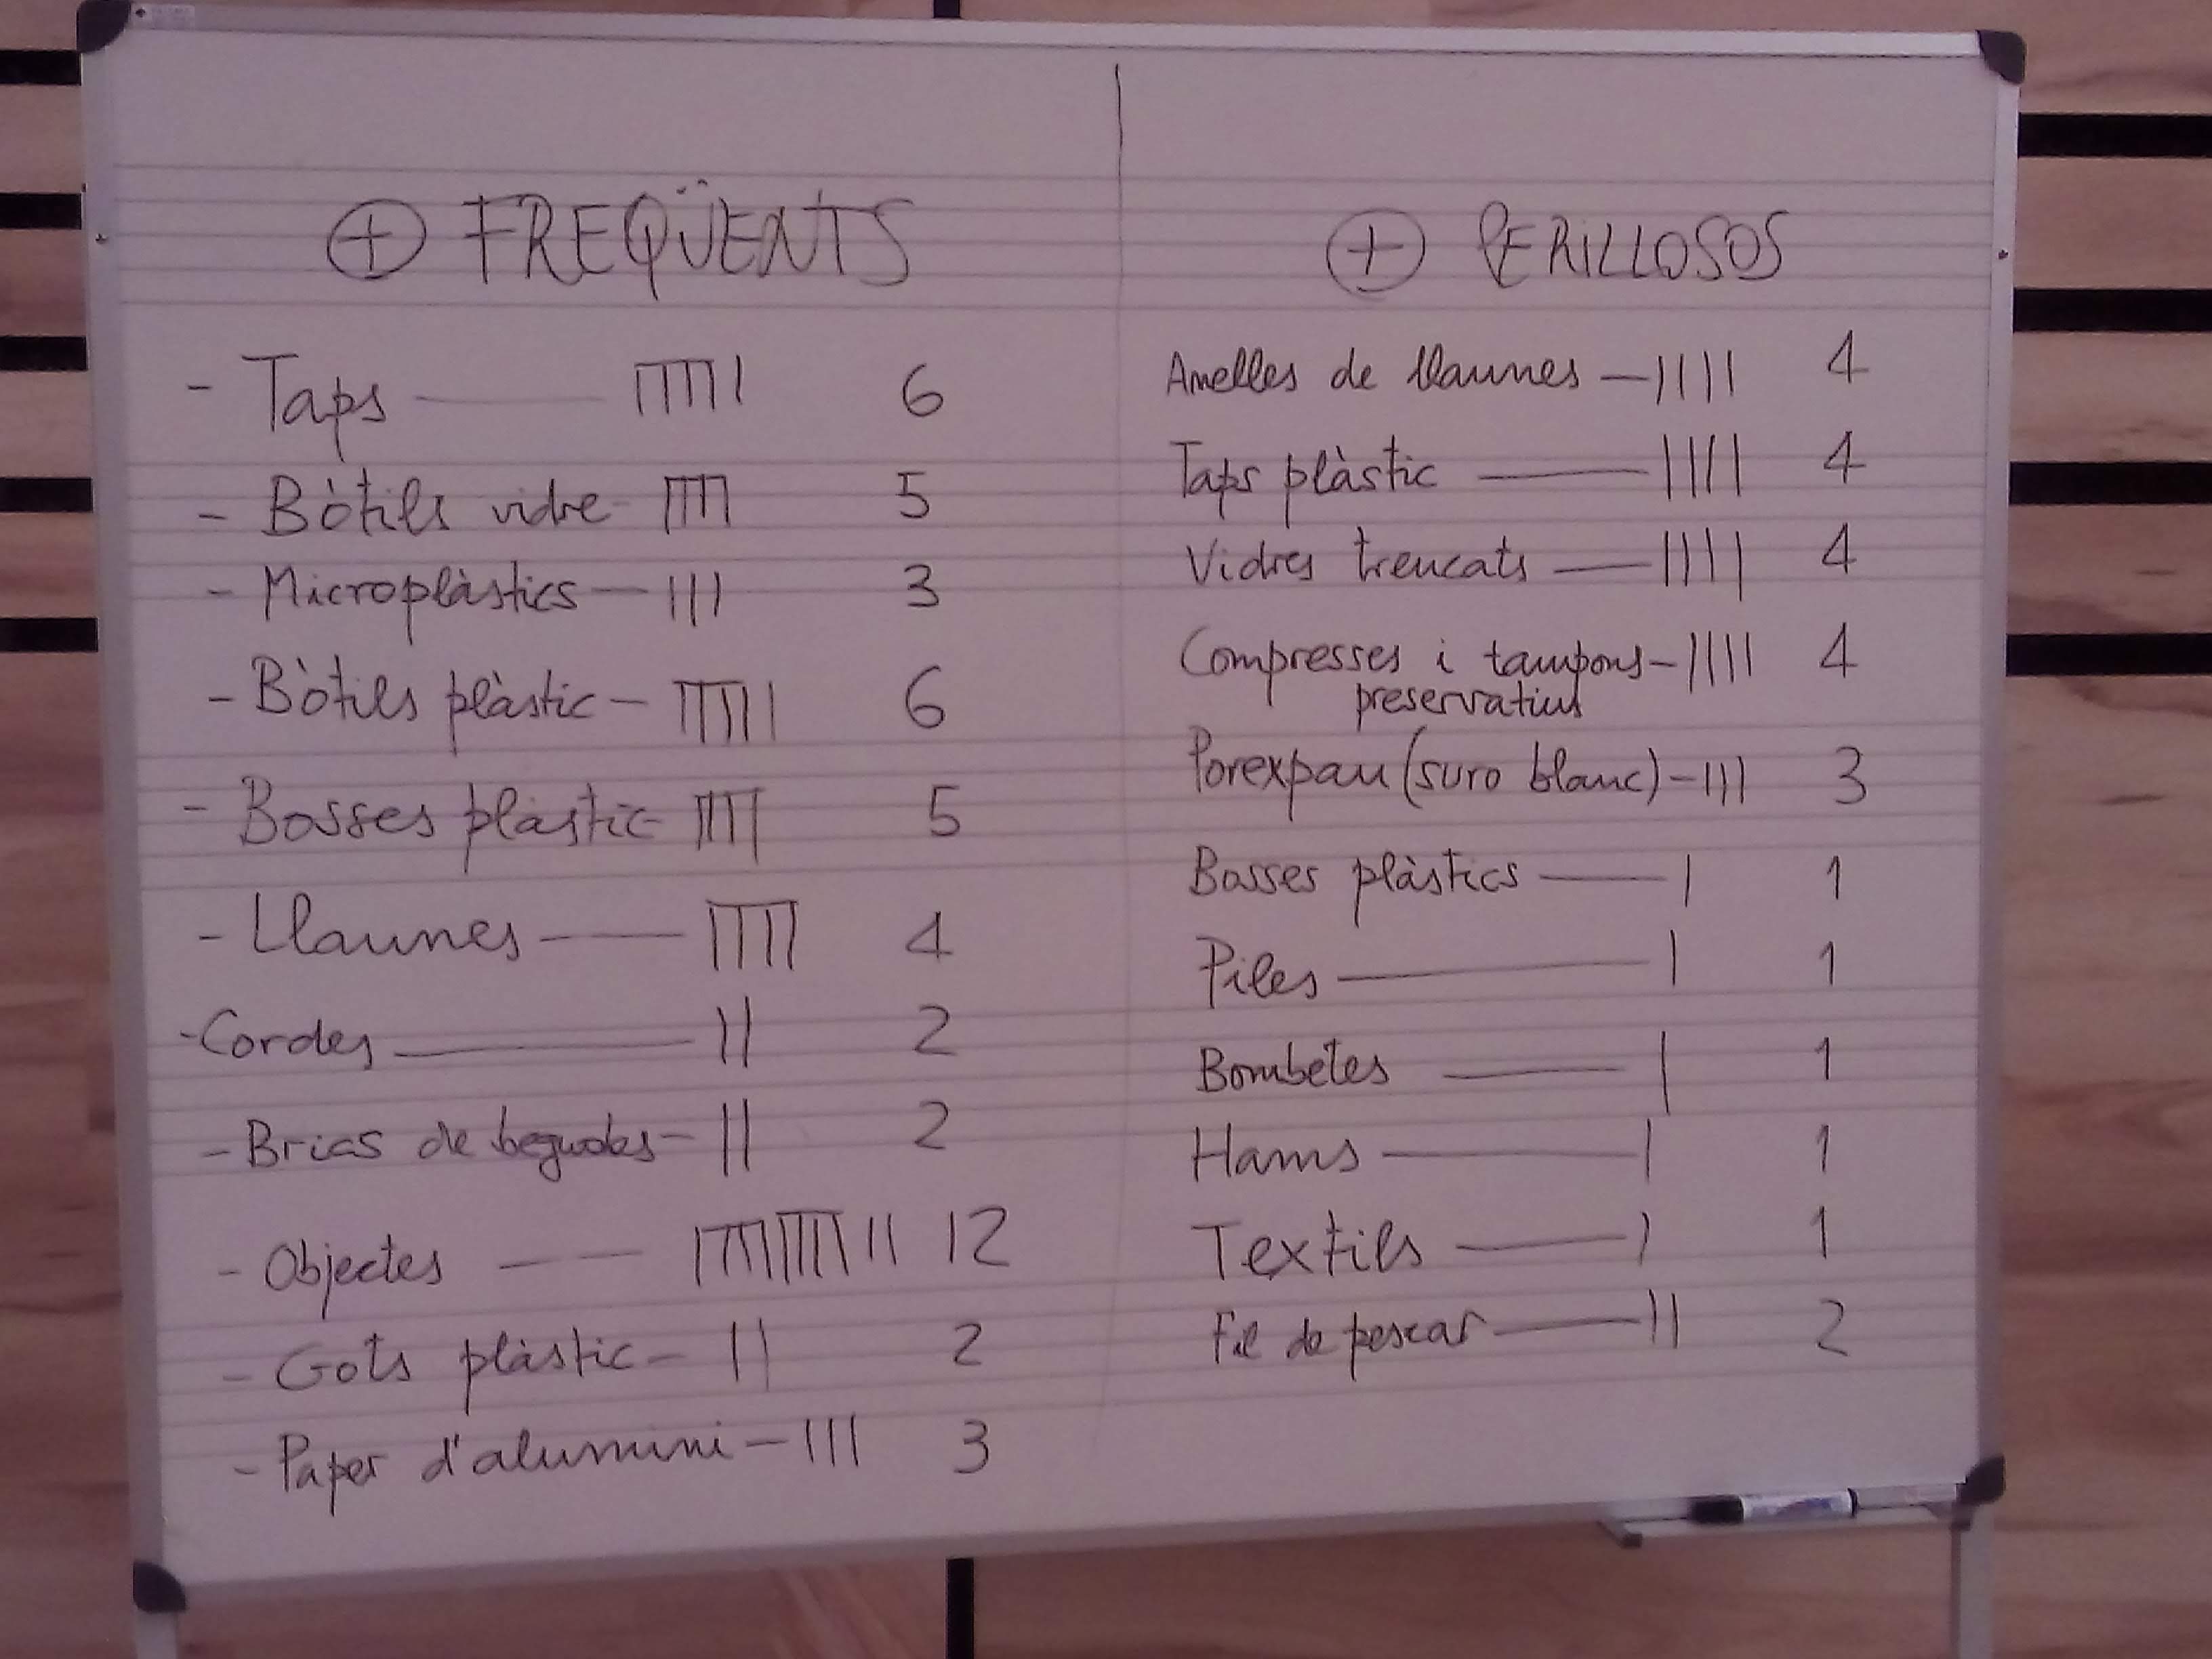 ⊕ FREQÜENTS
- Taps — 6
- Bòtils vidre - 5
- Microplàstics - 3
- Bòtils plàstic - 6
- Bosses plàstic 5
- Llaunes — 4
- Cordes — 2
- Brics de begudes - 2
- Objectes — 12
- Gots plàstic - 2
- Paper d'alumini - 3
⊕ PERILLOSOS
Anelles de llaunes - 4
Taps plàstic — 4
Vidres trencats — 4
Compresses i tampons - 4
preservatius
Porexpan (suro blanc) - 3
Bosses plàstics — 1
Piles — 1
Bombetes — 1
Hams — 1
Textils — 1
Fil de pescar — 2